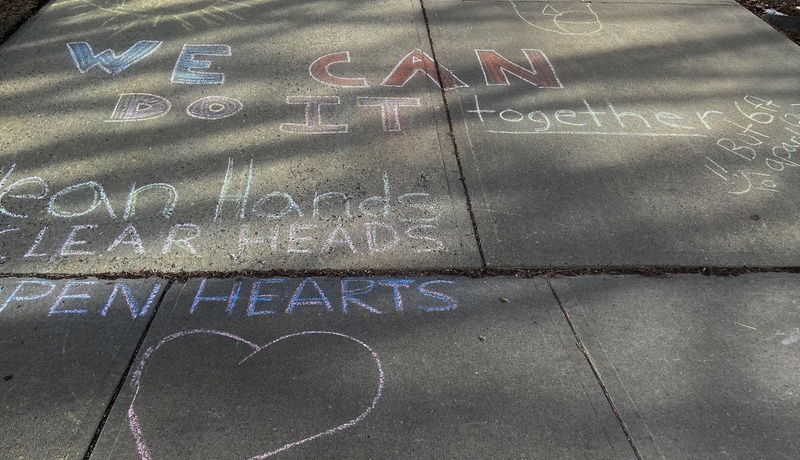 WE CAN
DO IT together
!! But 6ft
apart
lean Hands
LEAR HEADS
PEN HEARTS